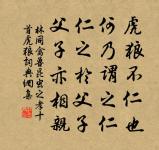 虎狼不仁也
何乃謂之仁
仁之於父子
父子亦相親
林同禽獸昆虫之孝十
首虎狼詞典網集